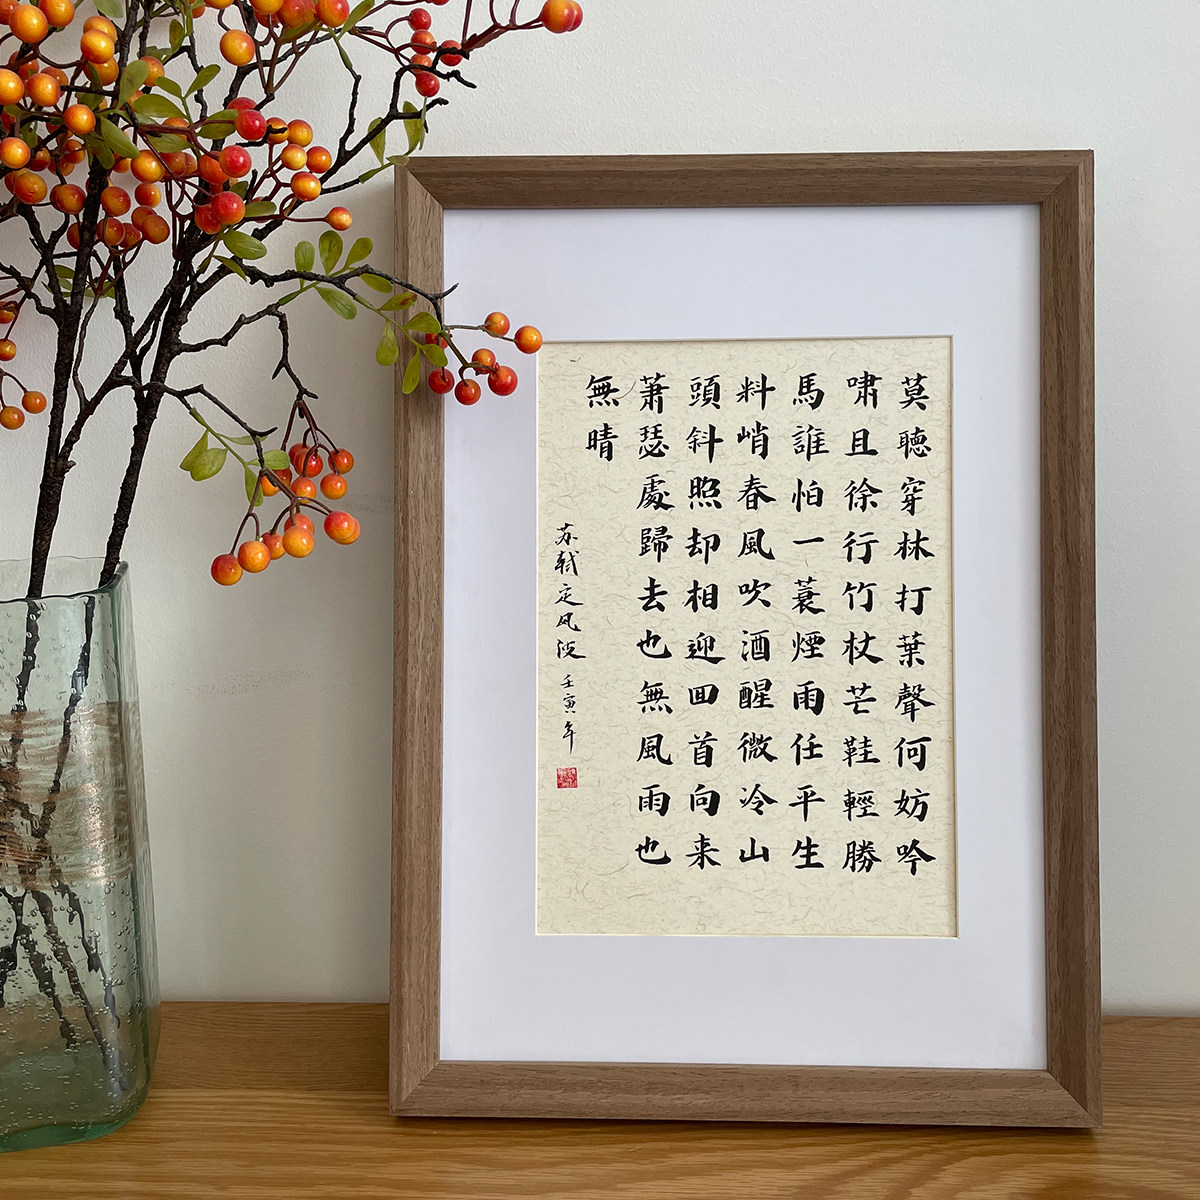 莫聽穿林打葉聲何妨吟
嘯且徐行竹杖芒鞋輕勝
馬誰怕一蓑煙雨任平生
料峭春風吹酒醒微冷山
頭斜照却相迎回首向来
萧瑟處歸去也無風雨也
無晴
苏軾定风波 壬寅年